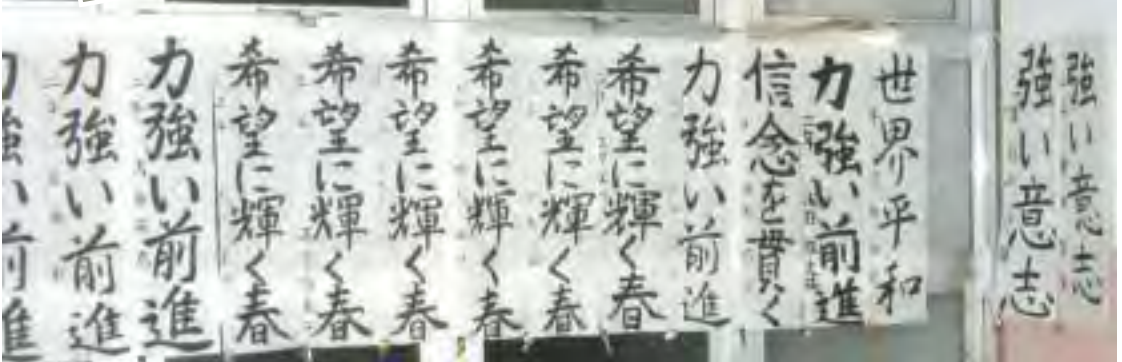 強い意志
強い意志
世界平和
力強い前進
信念を貫く
力強い前進
希望に輝く春
希望に輝く春
希望に輝く春
希望に輝く春
希望に輝く春
希望に輝く春
力強い前進
力強い前進
力強い前進